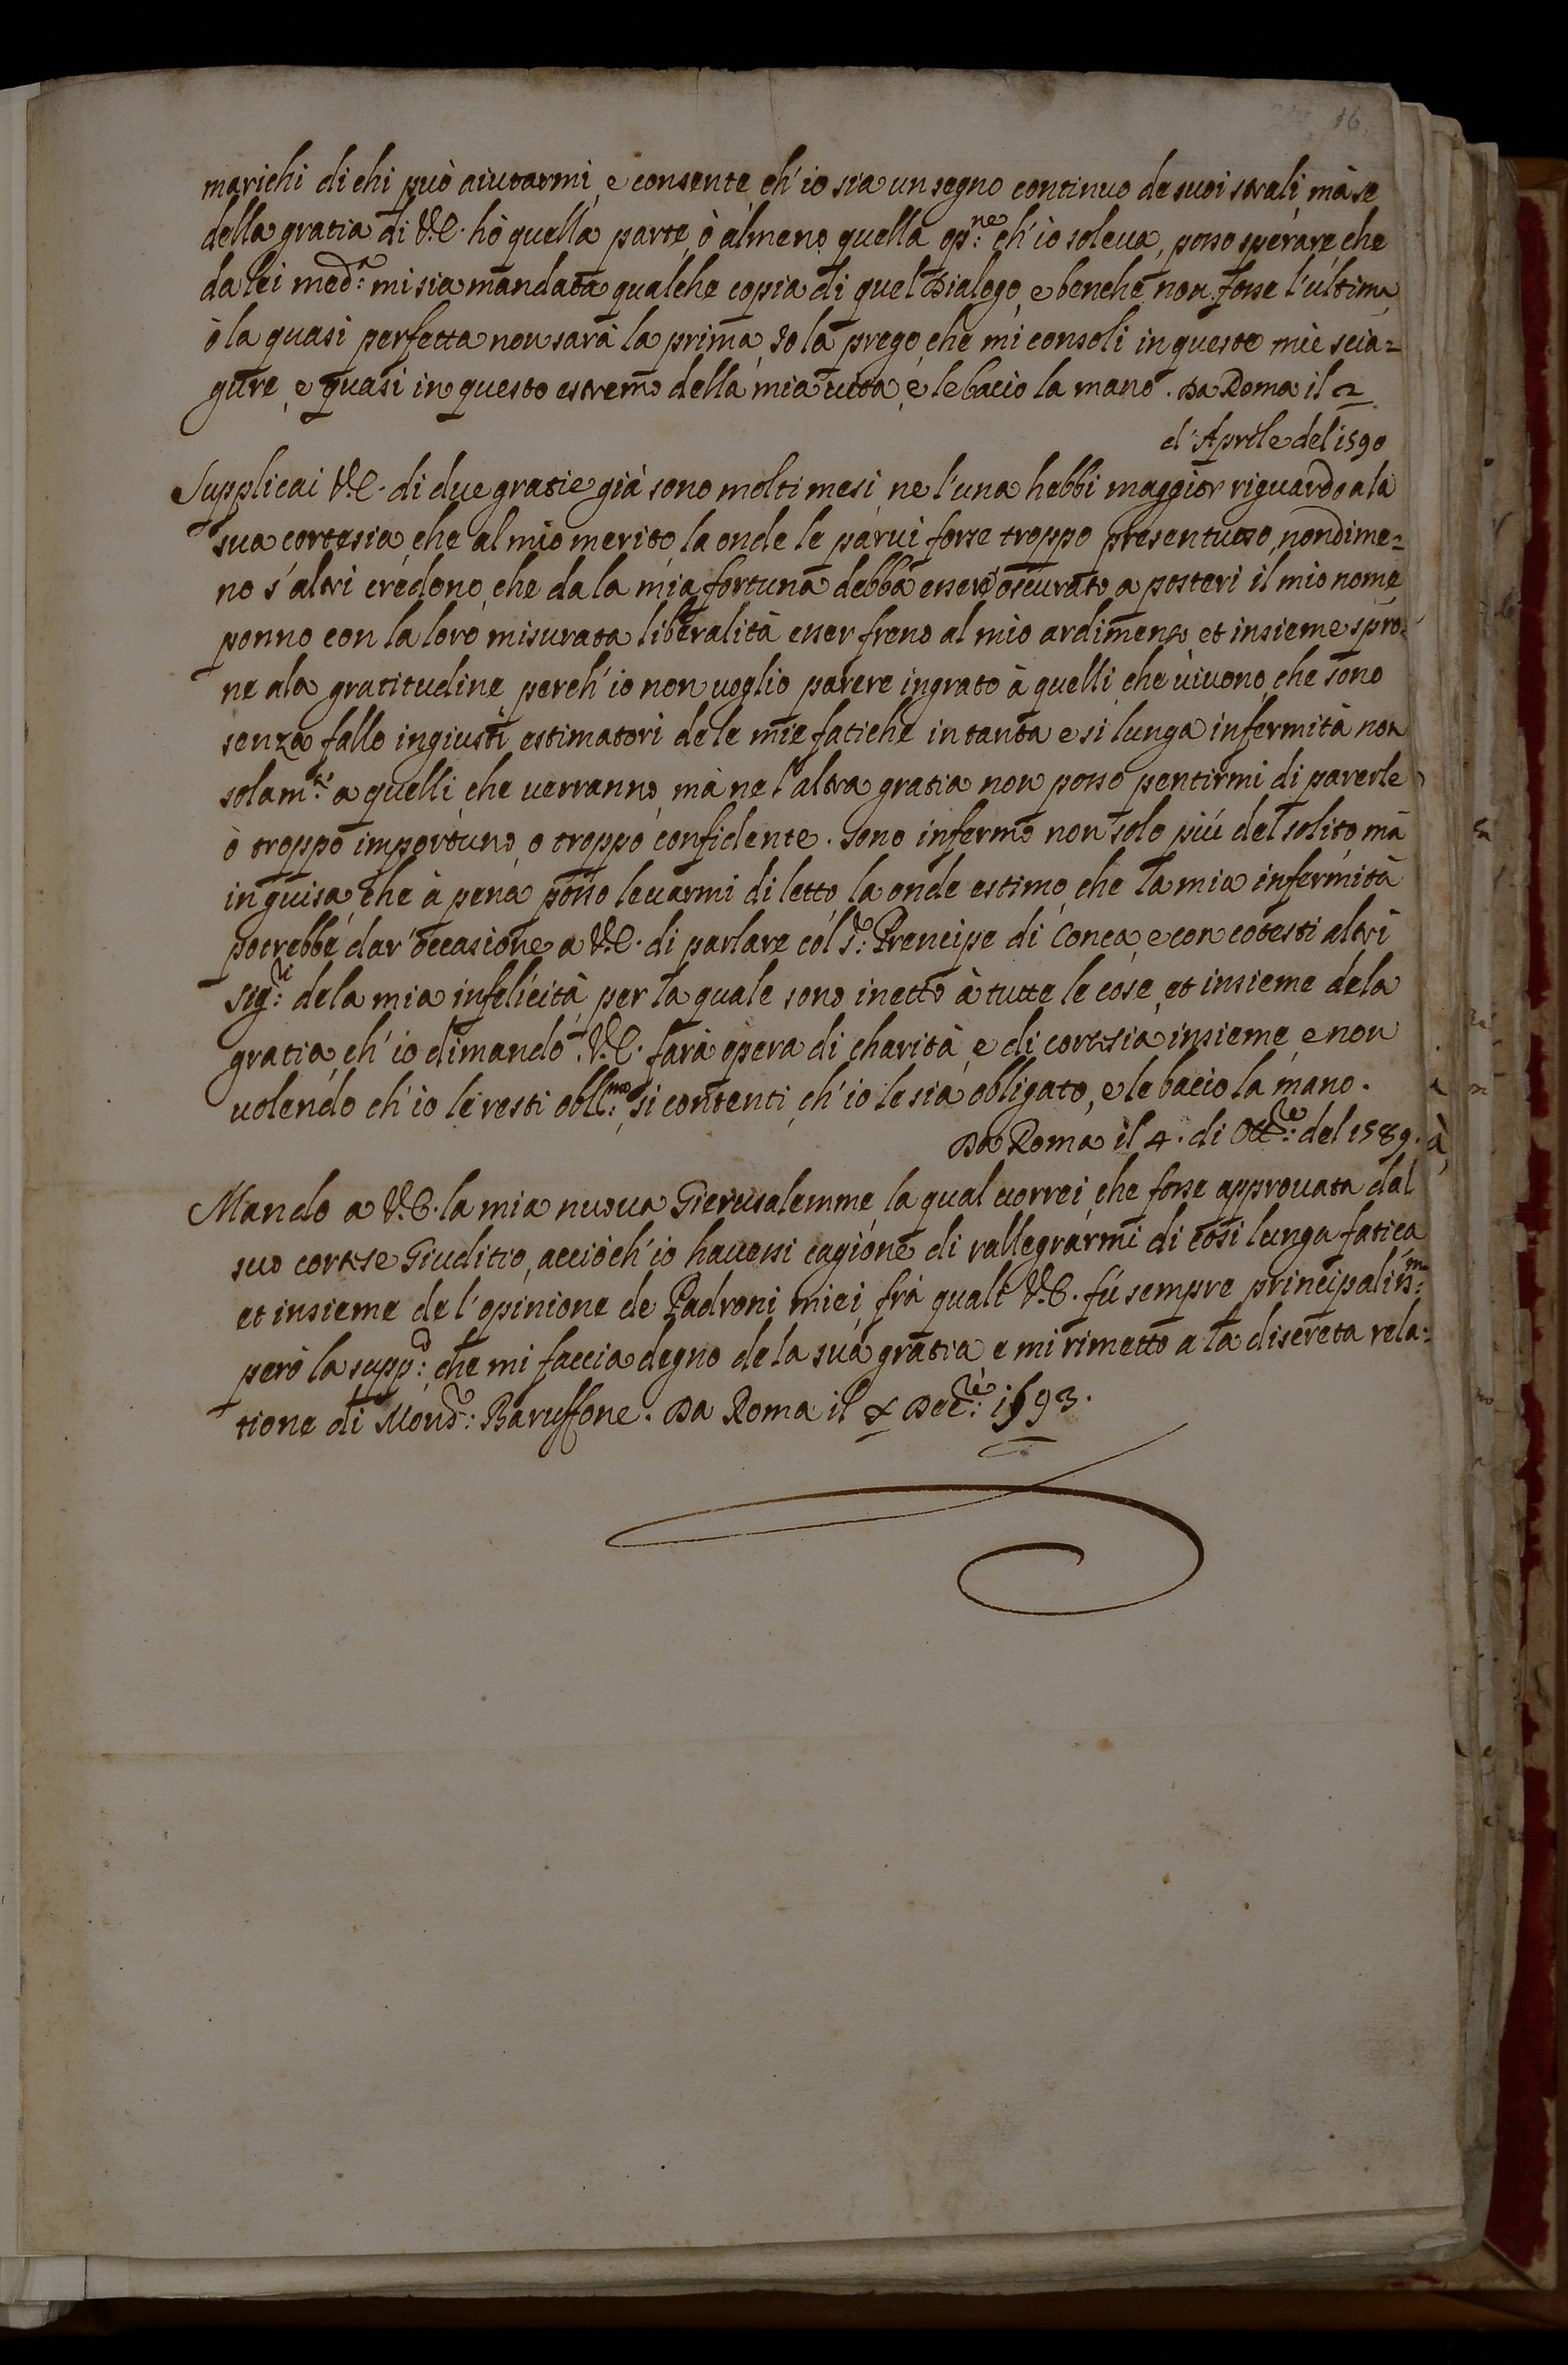 16.
marichi di chi può aiutarmi, e consente, ch'io sia un segno continuo de suoi strali, mà se
della gratia di V.E. hò quella parte, ò almeno quella op.ne ch'io soleua, posso sperare, che
da lei med.a mi sia mandata qualche copia di quel Dialogo, e benche non fosse l'ultima
ò la quasi perfetta non sarà la prima, Io la prego, che mi consoli in queste mie scia=
gure, e quasi in questo estremo della mia uita, e le bacio la mano. Da Roma il 2
d'Aprile del 1590
Supplicai V.E. di due gratie già sono molti mesi, ne l'una hebbi maggior riguardo a la
sua cortesia, che al mio merito, la onde le parui forse troppo presentuoso, nondime=
no s'altri credono, che da la mia fortuna debba essere oscurato a posteri il mio nome
ponno con la loro misurata liberalità esser freno al mio ardimento, et insieme spro=
ne ala gratitudine, perch'io non uoglio parere ingrato à quelli, che uiuono, che sono
senza fallo ingiusti estimatori dele mie fatiche in tanta e si lunga infermità non
solam.te a quelli che uerranno, mà ne l'altra gratia non posso pentirmi di pauerle
ò troppo importuno, o troppo confidente. Sono infermo non solo più del solito, mà
in guisa, che à pena posso leuarmi di letto, la onde estimo, che la mia infermità
potrebbe dar'occasione a V.E. di parlare col S.r Prencipe di Conca, e con cotesti altri
sig.ri dela mia infelicità, per la quale sono inetto à tutte le cose, et insieme dela
gratia, ch'io dimando. V.E. farà opera di charità, e di cortesia insieme, e non
uolendo ch'io le resti obll.mo, si contenti, ch'io le sia obligato, e le bacio la mano.
Da Roma il 4. di Ott.re del 1589.
Mando a V.E. la mia nuoua Gierusalemme, la qual uorrei, che fosse approuata dal
suo cortese Giuditio, acciòch'io hauessi cagione di rallegrarmi di cosi lunga fatica
et insieme de l'opinione de Padroni miei, frà quali V.E. fù sempre principaliss.mo
però la supp.o che mi faccia degno de la sua gratia, e mi rimetto a la discreta rela=
tione di Mons.r Baruffone. Da Roma il X Dec.re 1593.